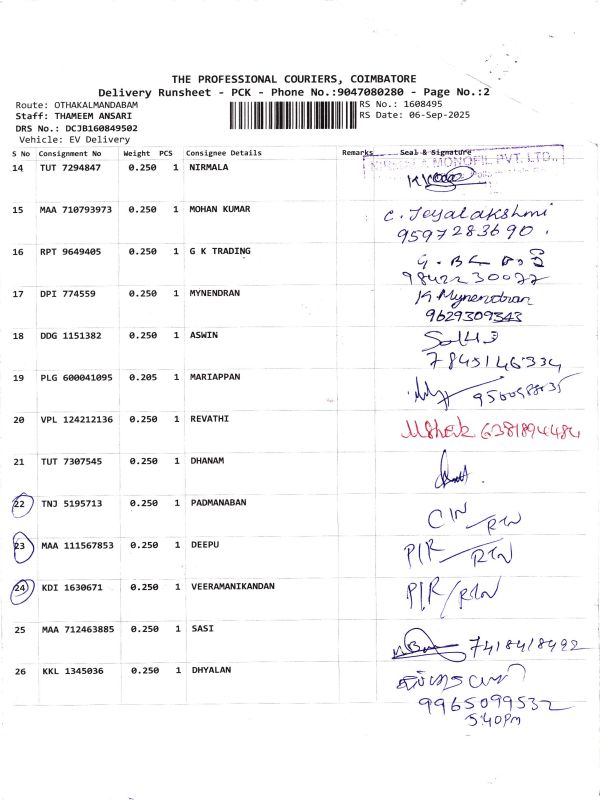 THE PROFESSIONAL COURIERS, COIMBATORE
Delivery Runsheet - PCK - Phone No.:9047080280 - Page No.:2
Route: OTHAKALMANDABAM RS No.: 1608495
Staff: THAMEEM ANSARI RS Date: 06-Sep-2025
DRS No.: DCJB160849502
Vehicle: EV Delivery
S No Consignment No Weight PCS Consignee Details Remarks Seal & Signature
MONOFIL PVT. LTD.,
14 TUT 7294847 0.250 1 NIRMALA
15 MAA 710793973 0.250 1 MOHAN KUMAR C. Jeyalakshmi
9597283690.
16 RPT 9649405 0.250 1 G K TRADING
9842230022
17 DPI 774559 0.250 1 MYNENDRAN K Mynendran
9629309343
18 DDG 1151382 0.250 1 ASWIN
7845146334
19 PLG 600041095 0.205 1 MARIAPPAN
20 VPL 124212136 0.250 1 REVATHI 6381894484
21 TUT 7307545 0.250 1 DHANAM
22 TNJ 5195713 0.250 1 PADMANABAN CIN/RTN
23 MAA 111567853 0.250 1 DEEPU P/R/RTN
24 KDI 1630671 0.250 1 VEERAMANIKANDAN P/R/RTN
25 MAA 712463885 0.250 1 SASI 7418418492
26 KKL 1345036 0.250 1 DHYALAN
9965099532
5:40pm